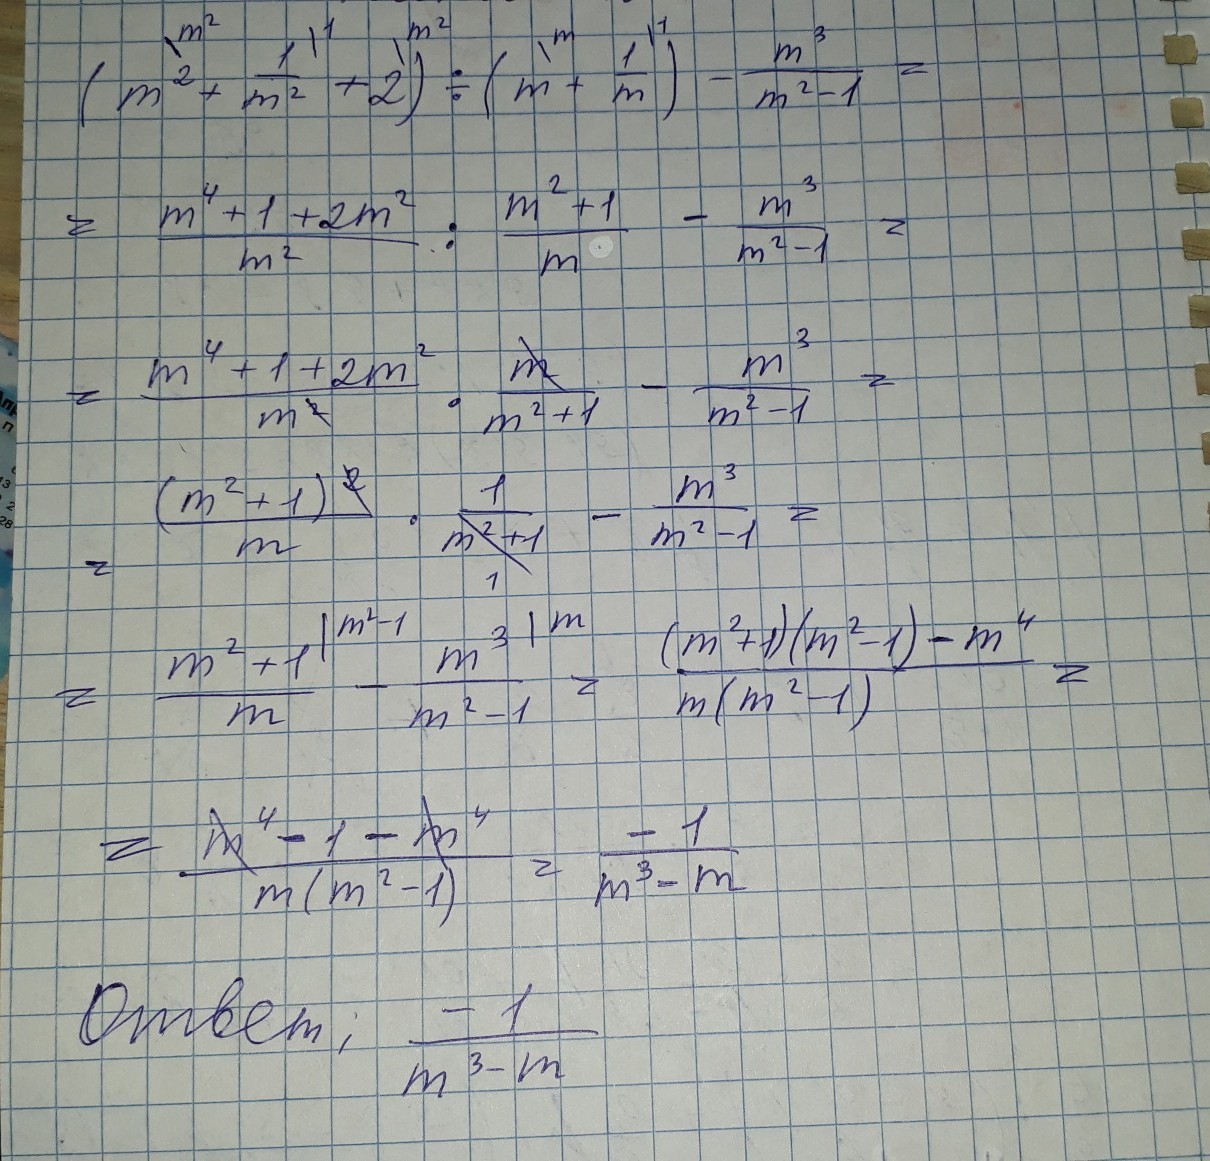 (m² \m² + 1/m² \1 + 2 \m²) ÷ (m \m + 1/m \1) - m³/(m²-1) =
= (m⁴+1+2m²)/m² : (m²+1)/m - m³/(m²-1) =
= (m⁴+1+2m²)/m² · m/(m²+1) - m³/(m²-1) =
= (m²+1)²/m · 1/(m²+1) 1 - m³/(m²-1) =
= (m²+1)/m |m²-1 - m³/(m²-1) |m = ((m²+1)(m²-1)-m⁴)/(m(m²-1)) =
= (m⁴-1-m⁴)/(m(m²-1)) = -1/(m³-m)
Ответ: -1/(m³-m)